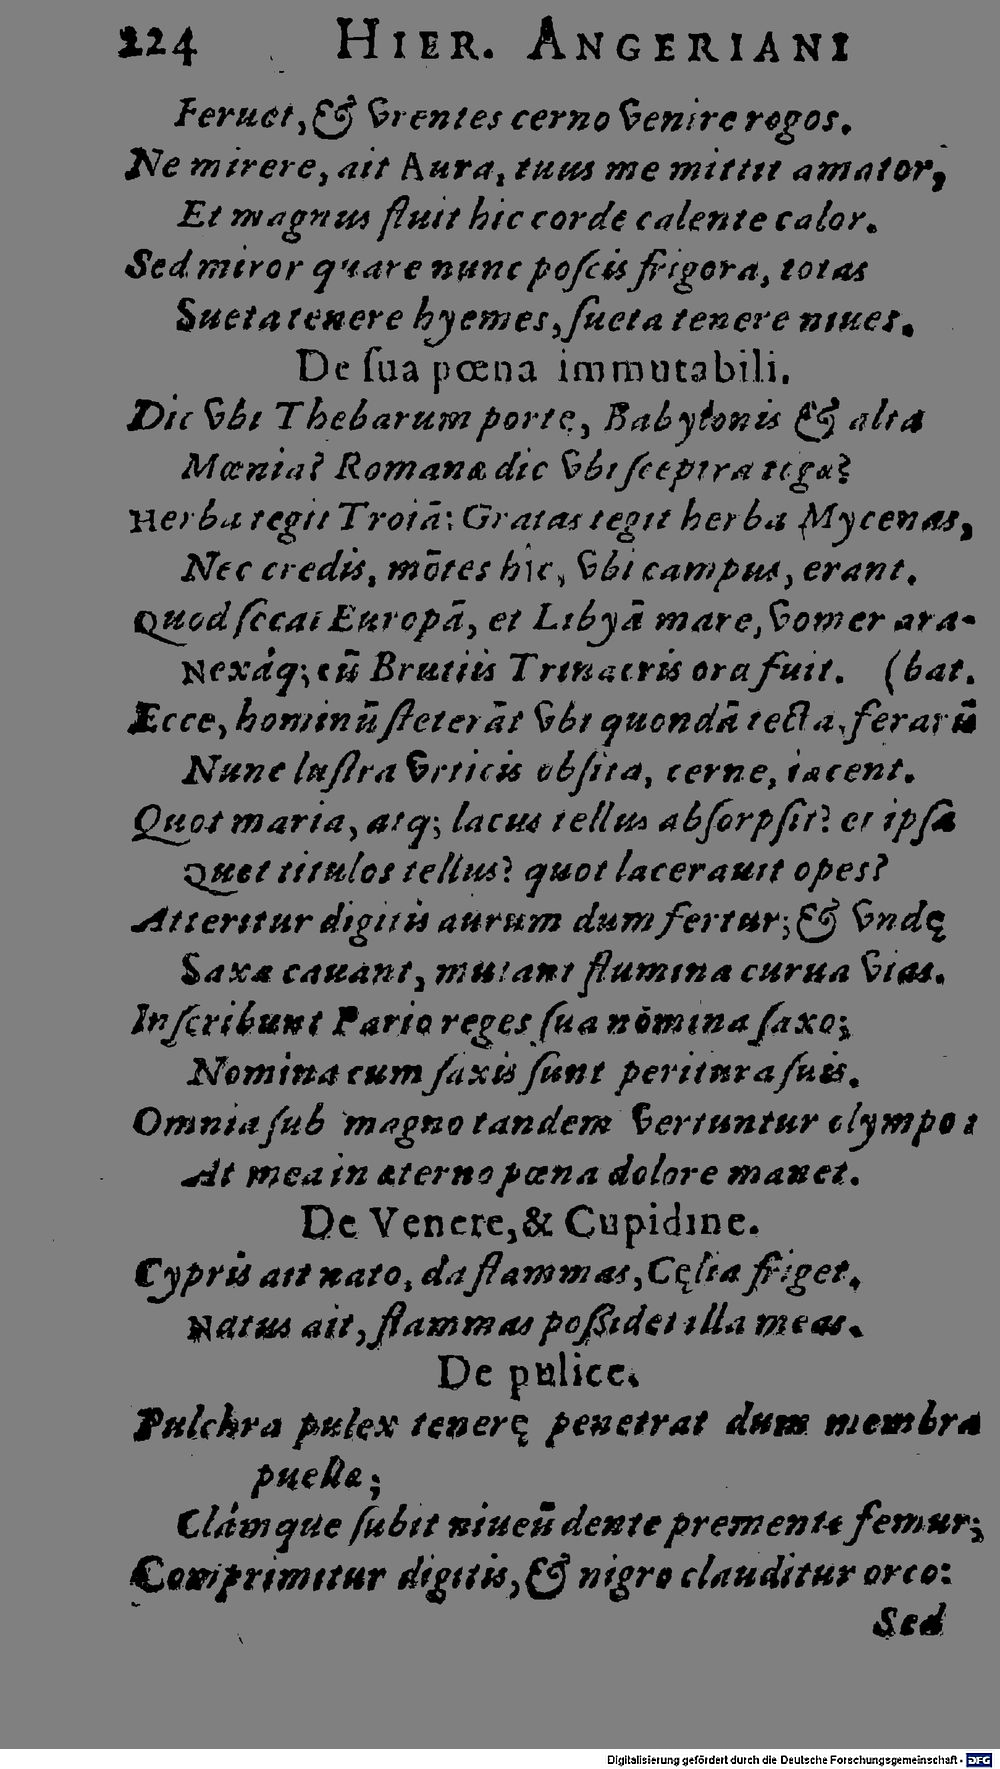 224 HIER. ANGERIANI
Feruet, & vrentes cerno venire rogos.
Ne mirere, ait Aura, tuus me mittit amator,
Et magnus fluit hic corde calente calor.
Sed miror quare nunc poſcis frigora, totas
Sueta tenere hyemes, ſueta tenere niues.
De ſua pœna immutabili.
Dic vbi Thebarum portę, Babylonis & alta
Mœnia? Romanæ dic vbi ſceptra togæ?
Herba tegit Troiā: Gratas tegit herba Mycenas,
Nec credis, mōtes hîc, vbi campus, erant.
Quod ſecat Europā, et Libyā mare, vomer ara-
Nexáq; cū Brutiis Trinacris ora fuit. (bat.
Ecce, hominū ſteterāt vbi quondā tecta, ferarū
Nunc luſtra vrticis obſita, cerne, iacent.
Quot maria, atq; lacus tellus abſorpſit? et ipſa
Quot titulos tellus? quot lacerauit opes?
Atteritur digitis aurum dum fertur; & vndę
Saxa cauant, mutant flumina curua vias.
Inſcribunt Pario reges ſua nomina ſaxo;
Nomina cum ſaxis ſunt peritura ſuis.
Omnia ſub magno tandem vertuntur olympo:
At mea in æterno pœna dolore manet.
De Venere, & Cupidine.
Cypris ait nato, da flammas, Cęlia friget.
Natus ait, flammas poſſidet illa meas.
De pulice.
Pulchra pulex tenerę penetrat dum membra
puellæ;
Clámque ſubit niueū dente premente femur;
Comprimitur digitis, & nigro clauditur orco:
Sed
Digitalisierung gefördert durch die Deutsche Forschungsgemeinschaft - DFG